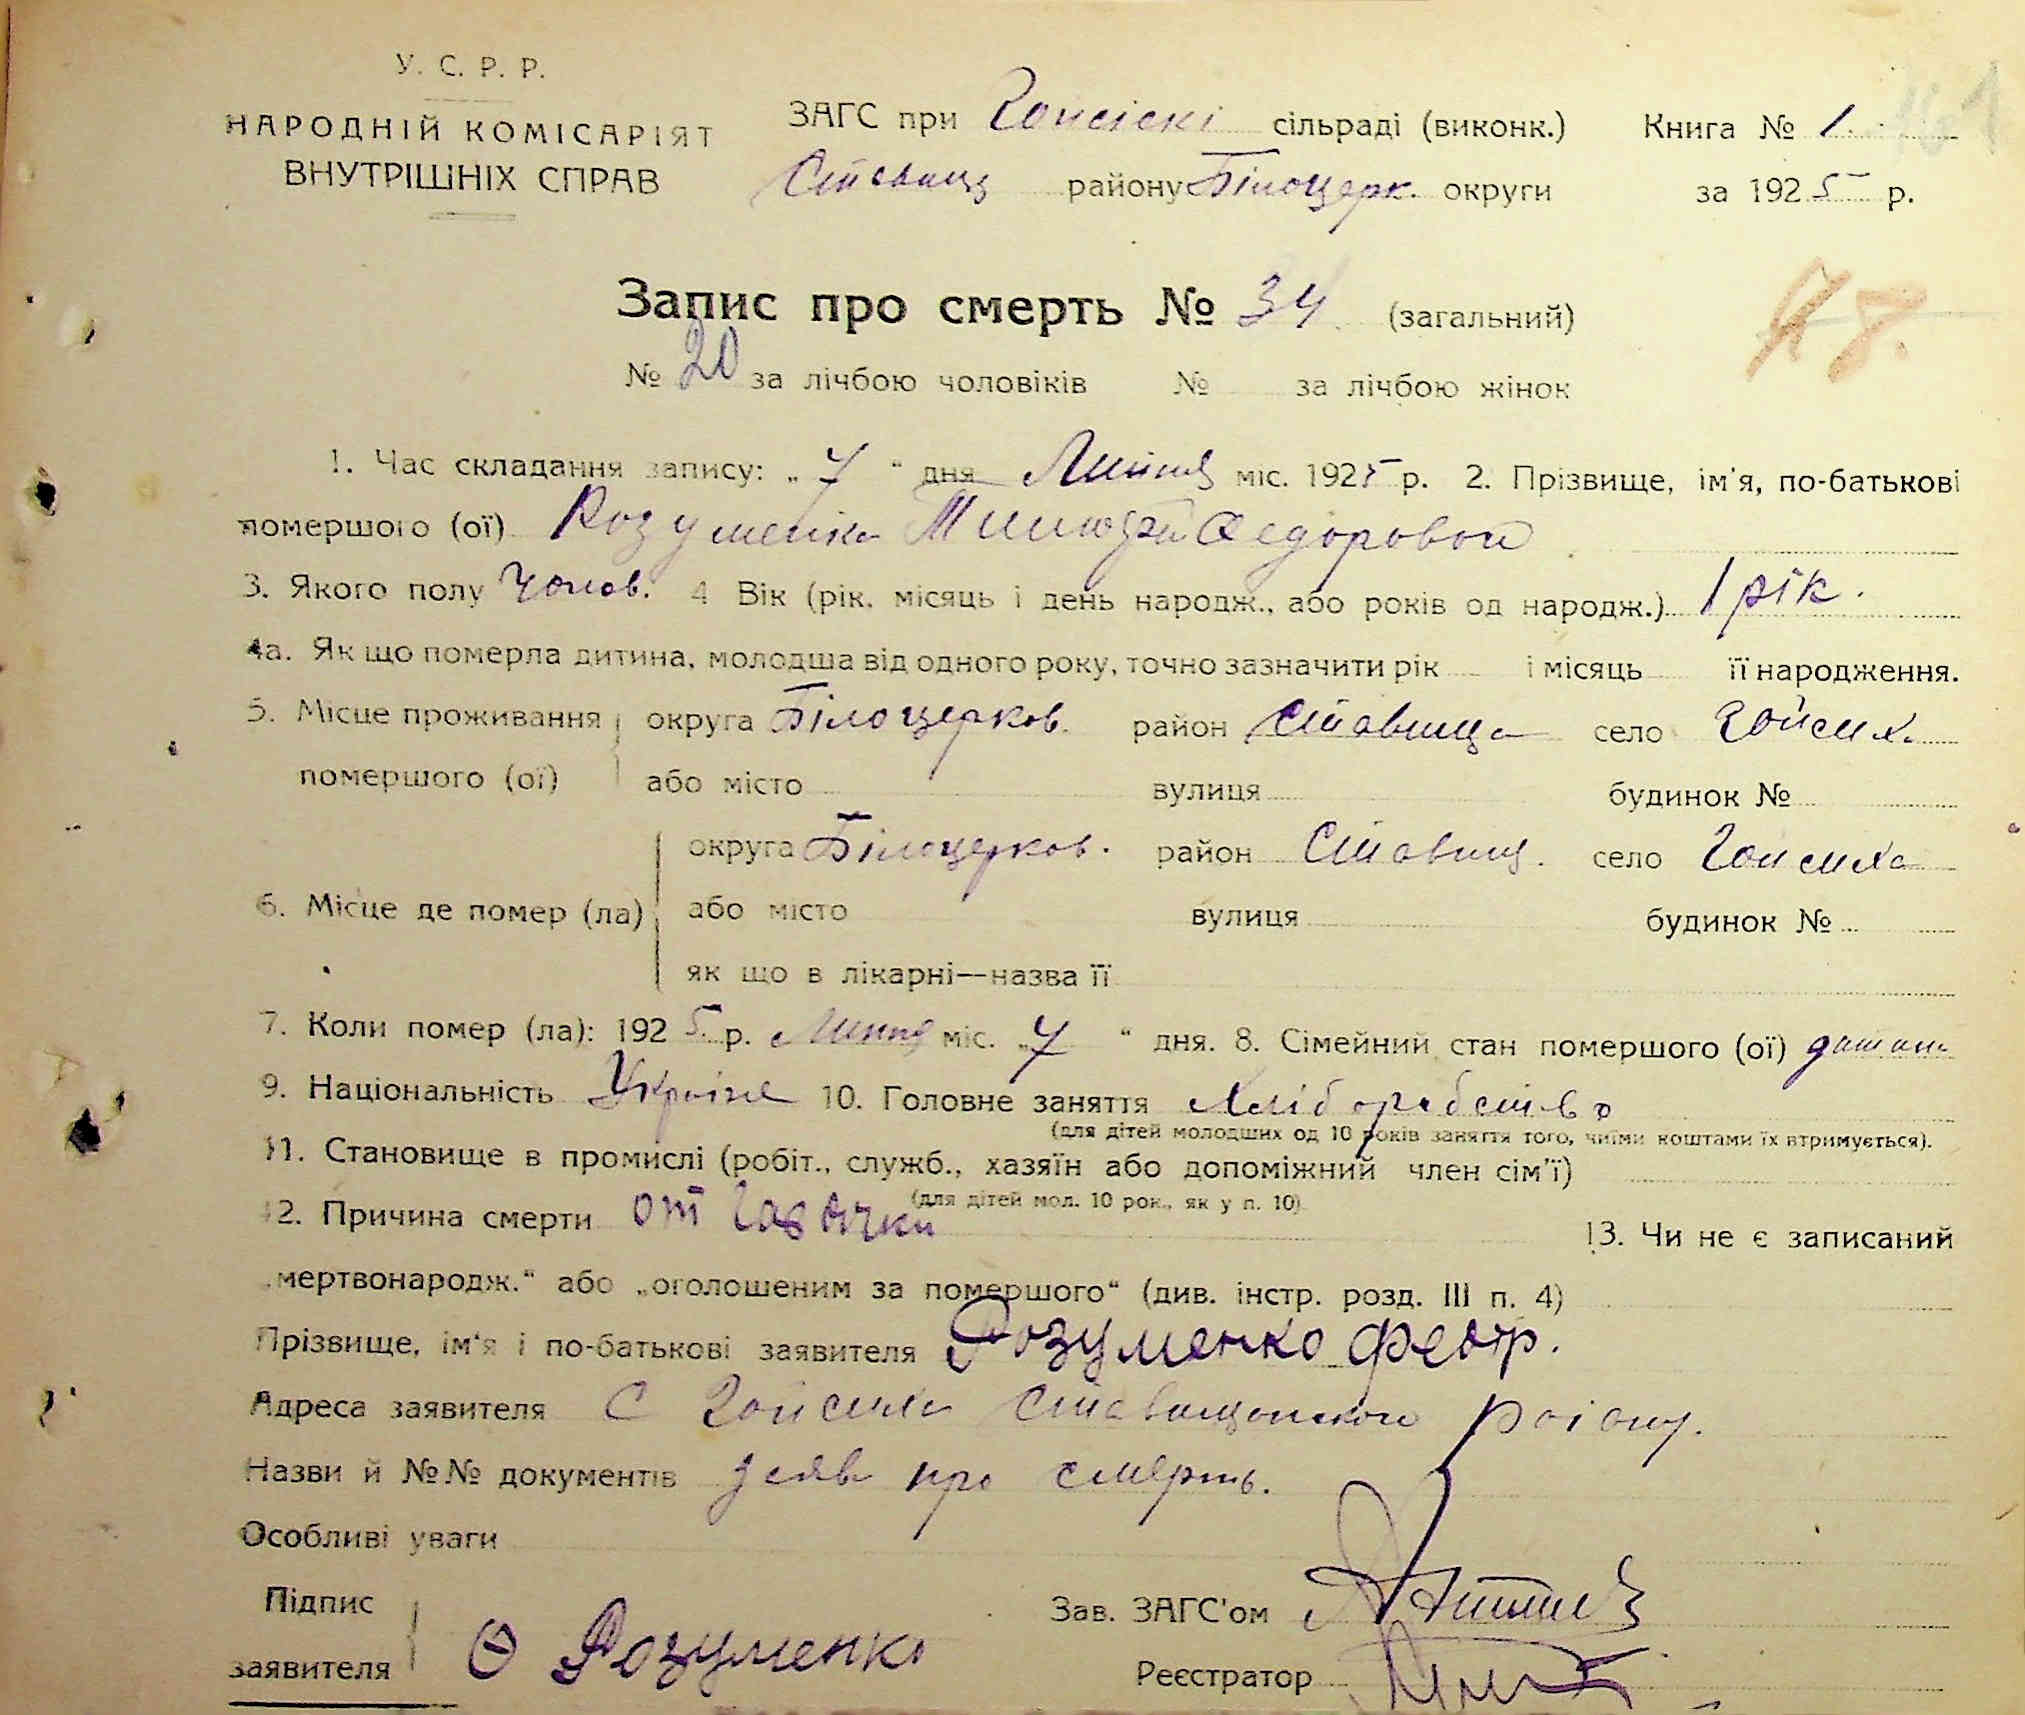 У. С. Р. Р.
НАРОДНІЙ КОМІСАРІЯТ
ВНУТРІШНІХ СПРАВ
ЗАГС при Гойсіскі сільраді (виконк.) Книга № 1.
Ставищ району Білоцерк. округи за 1925 р.
№1
Запис про смерть № 34 (загальний)
78.
№ 20 за лічбою чоловіків № за лічбою жінок
1. Час складання запису: „ 7 " дня Липня міс. 1925 р. 2. Прізвище, ім'я, по-батькові
помершого (ої) Розуменко Федоровой
3. Якого полу Чолов. 4 Вік (рік, місяць і день народж., або років од народж.) 1 рік.
4а. Як що померла дитина, молодша від одного року, точно зазначити рік і місяць її народження.
5. Місце проживання округа Білоцерков. район Ставища село Гойсиха
помершого (ої) або місто вулиця будинок №
округа Білоцерков. район Ставищ. село Гойсиха
6. Місце де помер (ла) або місто вулиця будинок №
як що в лікарні—назва її
7. Коли помер (ла): 1925 р. Липня міс. „ 7 " дня. 8. Сімейний стан помершого (ої)
9. Національність Україне 10. Головне заняття Хліборобство
(для дітей молодших од 10 років заняття того, чиїми коштами їх втримується).
11. Становище в промислі (робіт., служб., хазяїн або допоміжний член сім'ї)
(для дітей мол. 10 рок., як у п. 10)
12. Причина смерти от 13. Чи не є записаний
„мертвонародж." або „оголошеним за помершого" (див. інстр. розд. III п. 4)
Прізвище, ім'я і по-батькові заявителя Розуменко Федор.
Адреса заявителя С Гойсиха Ставищанського раіону.
Назви й №№ документів Заяв про смерть.
Особливі уваги
Підпис
заявителя Ѳ Розуменко
Зав. ЗАГС'ом
Реєстратор